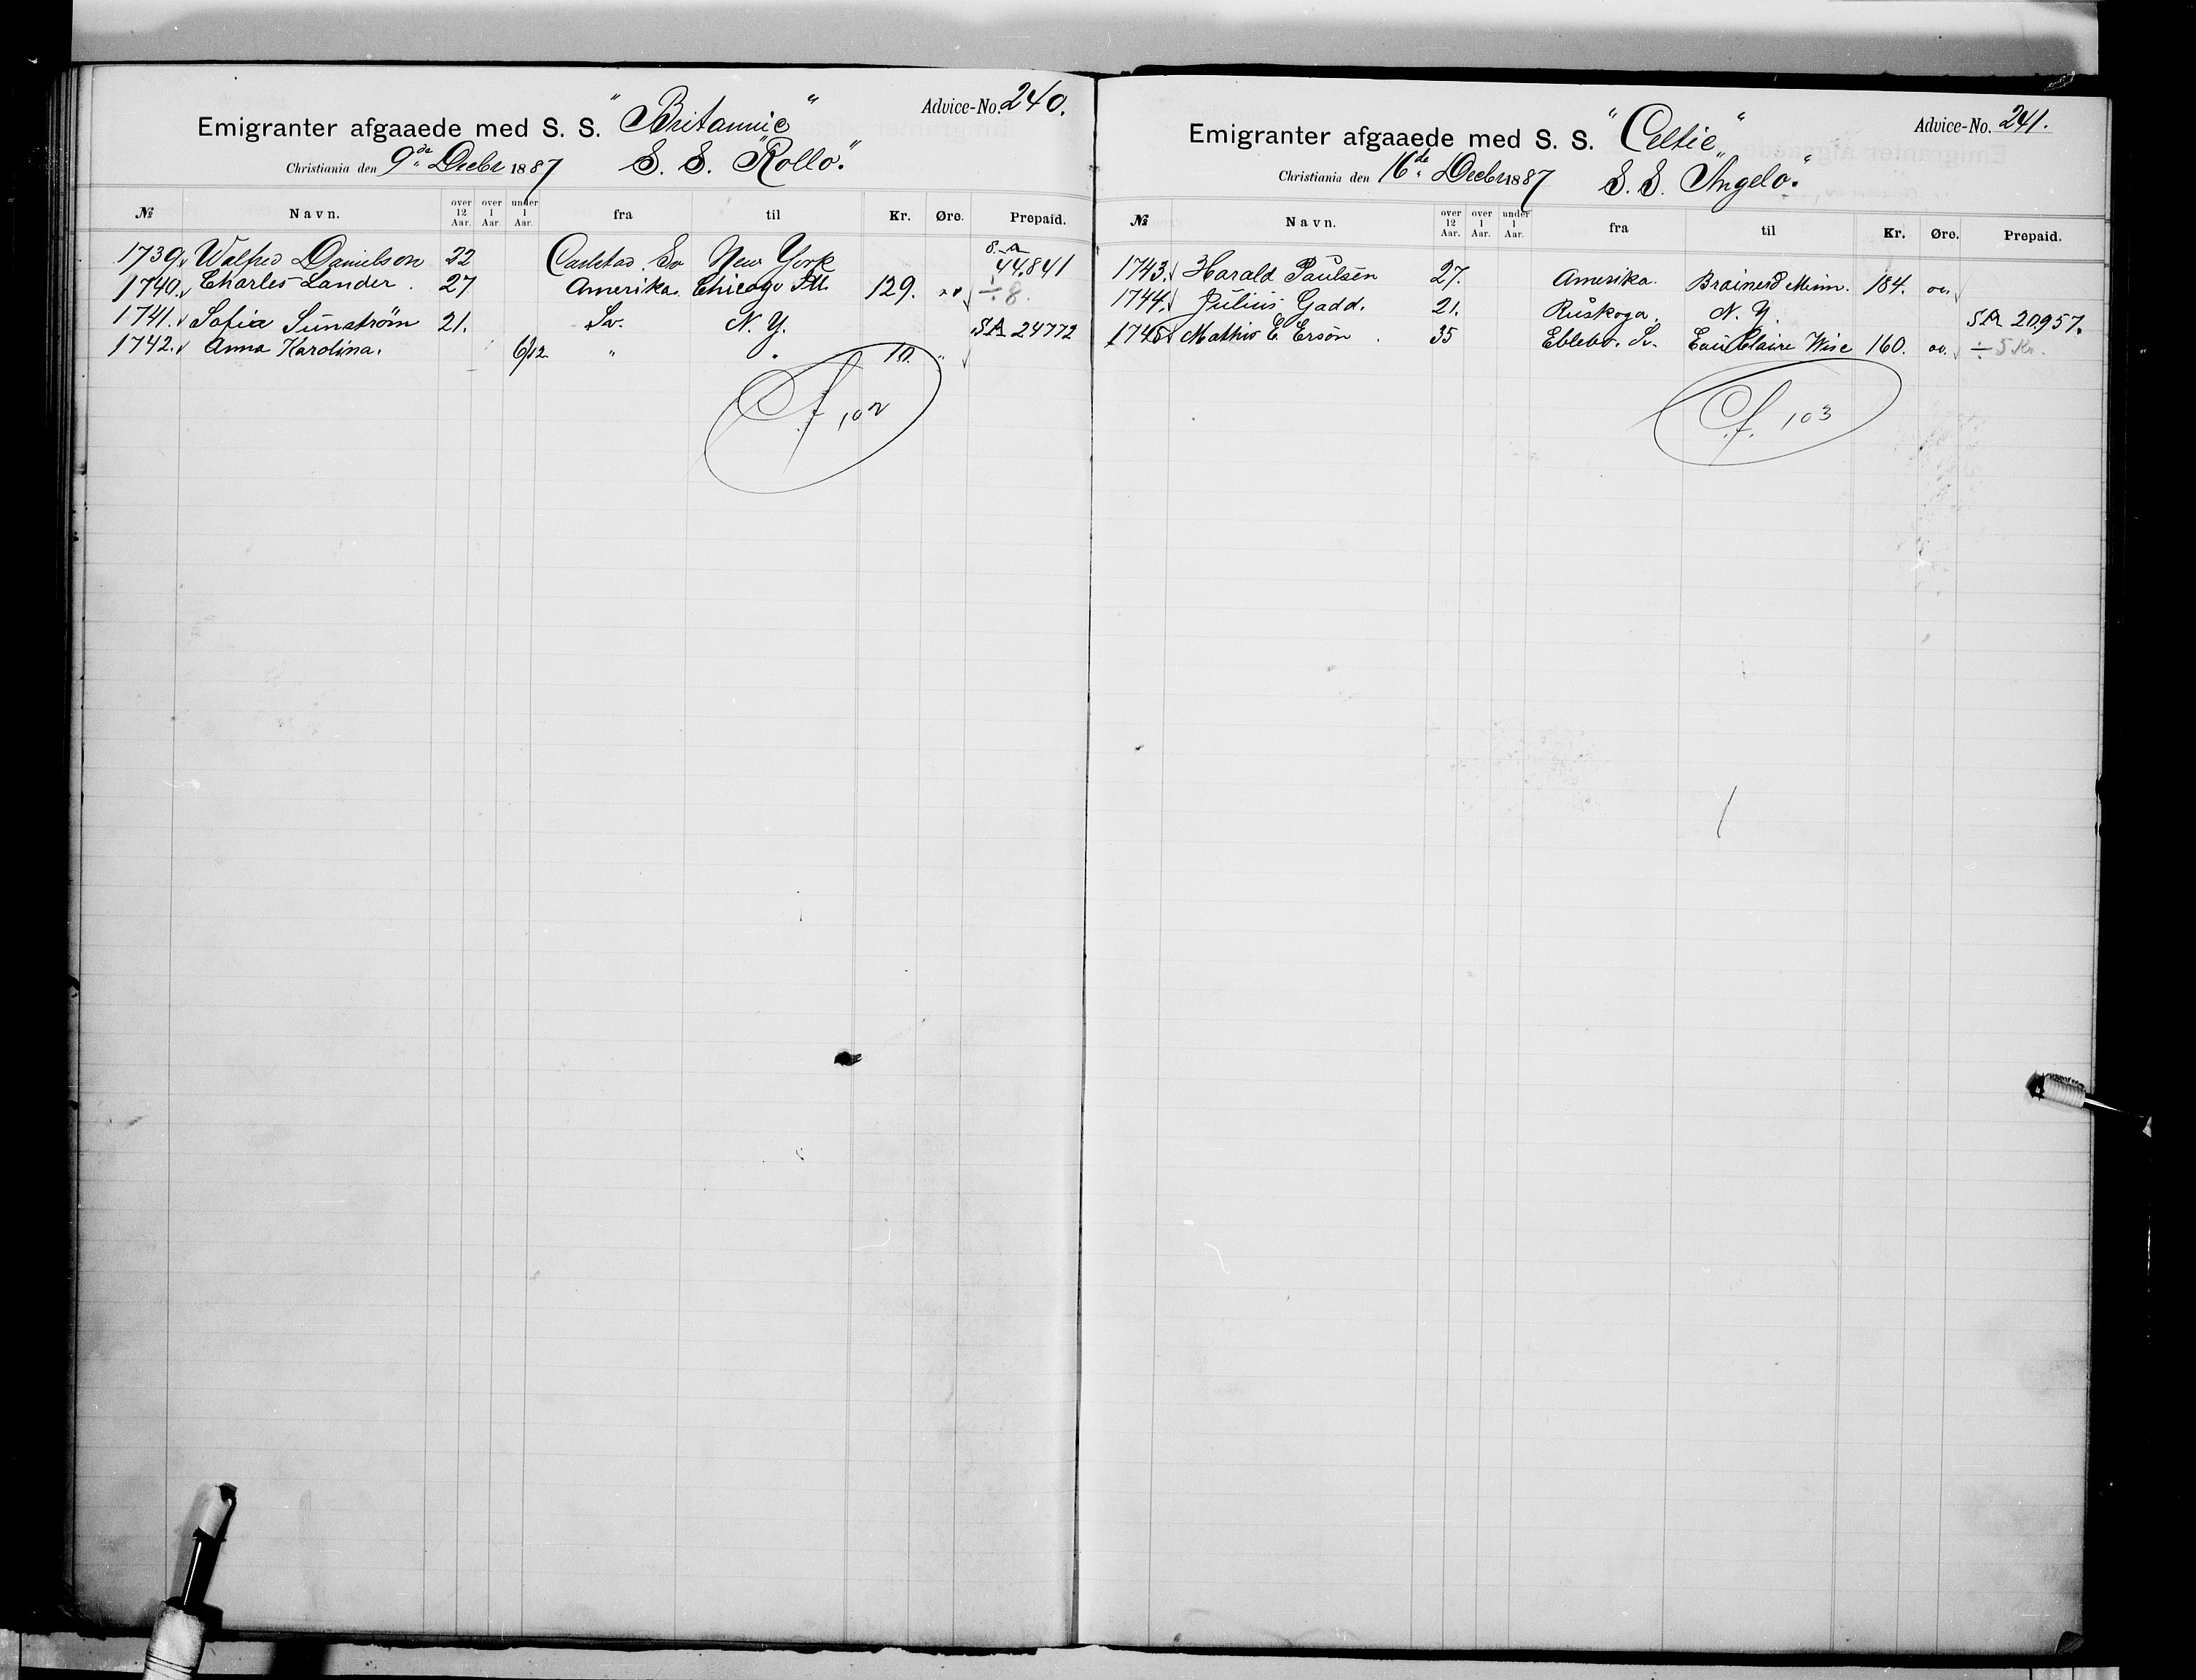 Emigranter afgaaede med S. S. "Britannic" Advice-No. 240.
Christiania den 9de Decbr 1887 S. S. "Rollo".
№ Navn. over 12 Aar. over 1 Aar. under 1 Aar. fra til Kr. Øre. Prepaid.
1739. Walfred Danielson 22 Carlstad. Sv New York S.A 44841
1740. Charles Lander. 27 Amerika. Chicago Ill. 129. ÷ 8.
1741. Sofia Sunström 21. Sv. N. Y. SA 24772
1742. Anna Karolina. 6/12 " " 10. "
Cf. 102
Emigranter afgaaede med S. S. "Celtic" Advice-No. 241.
Christiania den 16de Decbr 1887 S. S. "Angelo".
№ Navn. over 12 Aar. over 1 Aar. under 1 Aar. fra til Kr. Øre. Prepaid.
1743. Harald Paulsen 27. Amerika. Brainerd Minn. 184. oo.
1744. Julius Gadd. 21. Ruskoga. N. Y. SA 20957.
1745. Mathis E. Ersön. 35 Sv. Eau Claire Wisc 160. oo. ÷ 5 Kr.
Cf. 103